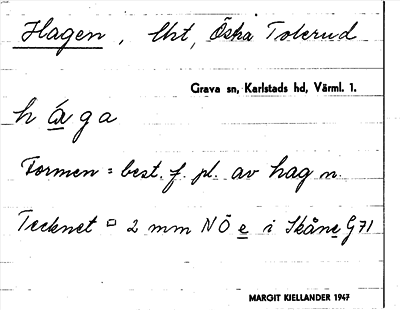 Hagen, lht, Östra Tolerud
Grava sn, Karlstads hd, Värml. 1.
h á̱ga
Formen = best. f. pl. av hag n.
Tecknet ¤ 2 mm NÖ e i Skåne G 71
MARGIT KJELLANDER 1947